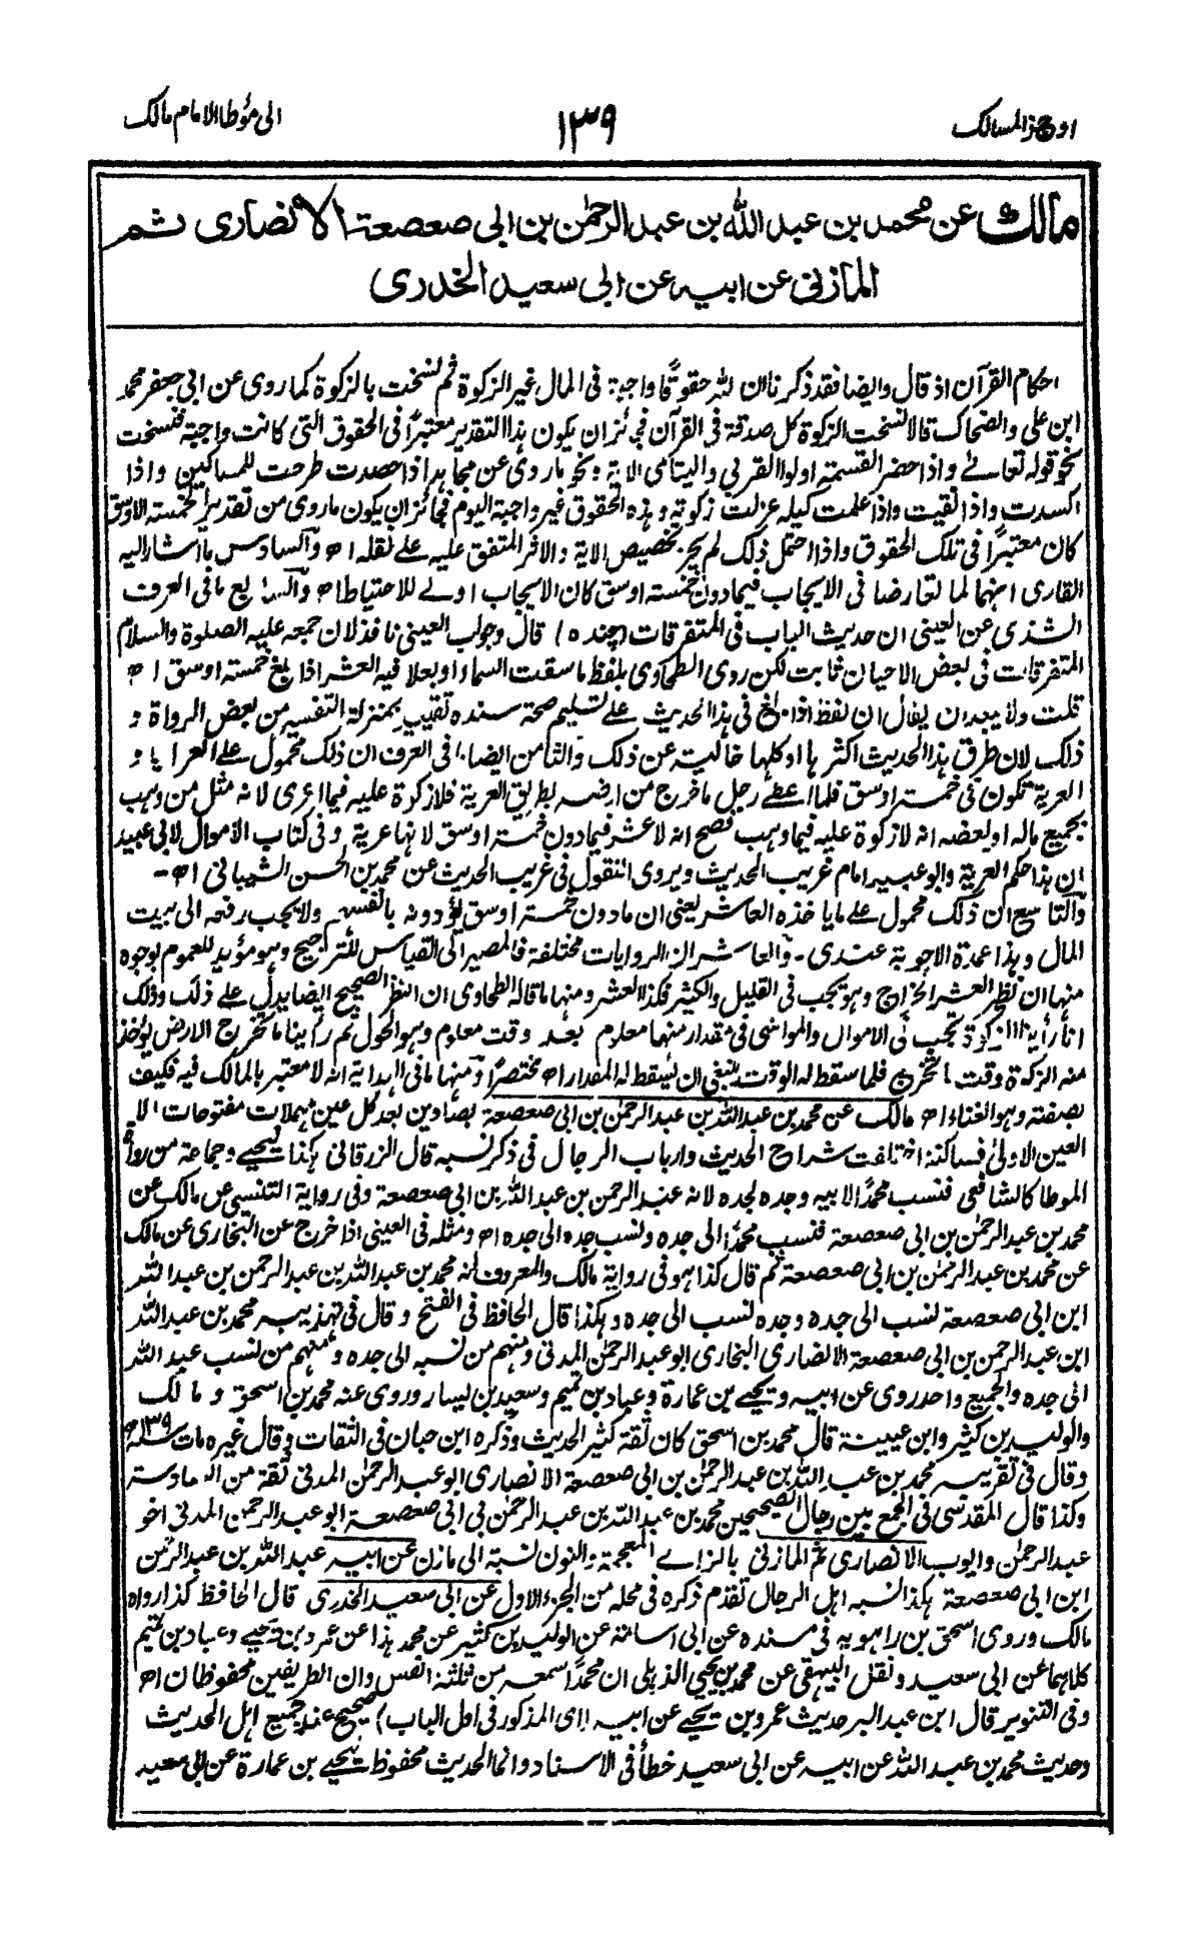 اوجز المسالك
١٣٩
الى مؤطا الامام مالك
مالك عن محمد بن عبد الله بن عبد الرحمٰن بن ابى صعصعة الانصارى ثم
المازنى عن ابيه عن ابى سعيد الخدرى
احكام القرآن اذ قال وايضا فقد ذكرنا ان لله حقوقًا واجبة فى المال غير الزكوة ثم نسخت بالزكوة كما روى عن ابى جعفر محمد
ابن على والضحاك قالا نسخت الزكوة كل صدقة فى القرآن فجائز ان يكون هذا التقدير معتبرًا فى الحقوق التى كانت واجبة فنسخت
نحو قوله تعالےٰ واذا حضر القسمة اولوا القربى واليتامى الاية ونحو ما روى عن مجاهد اذا حصدت طرحت للمساكين واذا
اكسدت واذا نقيت واذا علمت كيله عزلت زكوته وهذه الحقوق غير واجبة اليوم فجائز ان يكون ما روى من تقدير الخمسة الاوسق
كان معتبرًا فى تلك الحقوق واذا احتمل ذلك لم يجز تخصيص الاية والاثر المتفق عليه على نقله اه والسادس ما اشار اليه
القارى انهما لما تعارضا فى الايجاب فيما دون خمسة اوسق كان الايجاب اولے للاحتياط اه والسابع ما فى العرف
الشذى عن العينى ان حديث الباب فى المتفرقات (چنده) قال وجواب العينى نافذ لان جمعه عليه الصلوة والسلام
المتفرقات فى بعض الاحيان ثابت لكن روى الطحاوى بلفظ ما سقت السماء او بعلا فيه العشر اذا بلغ خمسة اوسق اه
قلت ولا يبعد ان يقال ان لفظ اذا بلغ فى هذا الحديث على تسليم صحة سنده تقييب بمنزلة التفسير من بعض الرواة و
ذلك لان طرق هذا الحديث اكثرها او كلها خالية عن ذلك والثامن ايضا فى العرف ان ذلك محمول على العرايا و
العرية تكون فى خمسة اوسق فلما اعطے رجل ما خرج من ارضه بطريق العرية فلا زكوة عليه فيما اعرى لانه مثل من وهب
بجميع ماله او بعضه انه لا زكوة عليه فيما وهب فصح انه لا عشر فيما دون خمسة اوسق لانها عرية وفى كتاب الاموال لابى عبيد
ان هذا حكم العرية وابو عبيد امام غريب الحديث ويروى النقول فى غريب الحديث عن محمد بن الحسن الشيبانى اه -
والتاسع ان ذلك محمول على ما ياخذه العاشر يعنى ان ما دون خمسة اوسق يؤدونه بانفسهم ولا يجب رفعه الى بيت
المال وهذا عمدة الاجوبة عندى - والعاشر ان الروايات مختلفة فالمصير الى القياس للترجيح وهو مؤيد للعموم بوجوه
منها ان نظير العشر الخراج وهو يجب فى القليل والكثير فكذا العشر ومنها ما قاله الطحاوى ان النظر الصحيح ايضا يدل على ذلك وذلك
انا رأينا الزكوة تجب فى الاموال والمواشى فى مقدار منها معلوم بعد وقت معلوم وهو الحول ثم رأينا ما تخرج الارض يؤخذ
منه الزكوة وقت ما تخرج فلما سقط له الوقت ينبغى ان يسقط له المقدار اه مختصرًا ومنها ما فى الهداية انه لا معتبر بالمالك فيه فكيف
بصفته وهو الغناء اه مالك عن محمد بن عبد الله بن عبد الرحمٰن بن ابى صعصعة بصادين بعد كل عين مهملات مفتوحات الا
العين الاولىٰ فساكنة اختلفت شراح الحديث وارباب الرجال فى ذكر نسبه قال الزرقانى هكذا ليحيے وجماعة من رواة
الموطا كالشافعى فنسب محمدًا لابيه وجده لجده لانه عبد الرحمن بن عبد الله بن ابى صعصعة وفى رواية التنيسى عن مالك عن
محمد بن عبد الرحمٰن بن ابى صعصعة فنسب محمدًا الى جده ونسب جده الى جده اه ومثله فى العينى اذا خرج عن البخارى عن مالك
عن محمد بن عبد الرحمٰن بن ابى صعصعة ثم قال كذا هو فى رواية مالك والمعروف انه محمد بن عبد الله بن عبد الرحمن بن عبد الله
ابن ابى صعصعة نسب الى جده وجده نسب الى جده وهكذا قال الحافظ فى الفتح وقال فى تهذيبه محمد بن عبد الله
ابن عبد الرحمن بن ابى صعصعة الانصارى البخارى ابو عبد الرحمٰن المدنى ومنهم من نسبه الى جده ومنهم من نسب عبد الله
الى جده والجميع واحد روى عن ابيه ويحيے بن عمارة وعباد بن تميم وسعيد بن يسار وروى عنه محمد بن اسحق و مالك
والوليد بن كثير وابن عيينة قال محمد بن اسحق كان ثقة كثير الحديث وذكره ابن حبان فى الثقات وقال غيره مات سنة ١٣٩ه
وقال فى تقريبه محمد بن عبد الله بن عبد الرحمٰن بن ابى صعصعة الانصارى ابو عبد الرحمٰن المدنى ثقة من السادسة
وكذا قال المقدسى فى الجمع بين رجال الصحيحين محمد بن عبد الله بن عبد الرحمٰن بن ابى صعصعة ابو عبد الرحمن المدنى اخو
عبد الرحمٰن وايوب الانصارى ثم المازنى بالزاے المعجمة والنون نسبة الى مازن عن ابيه عبد الله بن عبد الرحمٰن
ابن ابى صعصعة هكذا نسبه اهل الرجال تقدم ذكره فى محله من الجزء الاول عن ابى سعيد الخدرى قال الحافظ كذا رواه
مالك وروى اسحق بن راهويه فى مسنده عن ابى اسامة عن الوليد بن كثير عن محمد هذا عن عمرو بن يحيے وعباد بن تميم
كلاهما عن ابى سعيد ونقل البيهقى عن محمد بن يحيى الذهلى ان محمدًا سمعه من ثلثة انفس وان الطريقين محفوظان اه
وفى التنوير قال ابن عبد البر حديث عمرو بن يحيے عن ابيه (اى المذكور فى اول الباب) صحيح عند جميع اهل الحديث
وحديث محمد بن عبد الله عن ابيه عن ابى سعيد خطأ فى الاسناد وانما الحديث محفوظ ليحيے بن عمارة عن ابى سعيد